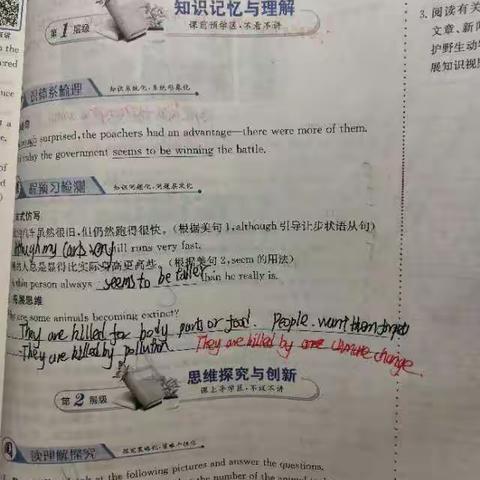 知识记忆与理解
第1层级
课前预学区·不看不讲
3. 阅读有关
文章、新闻
护野生动物
展知识视野
知识体系梳理
知识系统化·系统形象化
surprised, the poachers had an advantage—there were more of them.
the government seems to be winning the battle.
预习检测
知识问题化·问题层次化
式仿写
虽然很旧,但仍然跑得很快。(根据美句1,although引导让步状语从句)
my car is very
still runs very fast.
人总是显得比实际身高更高些。(根据美句2,seem的用法)
person always seems to be taller than he really is.
展思维
are some animals becoming extinct?
They are killed for body parts or food People want them
They are killed by pollution They are killed by climate change.
思维探究与创新
第2层级
课上导学区·不议不讲
读理解探究
at the following pictures and answer the questions.
the number of the animal